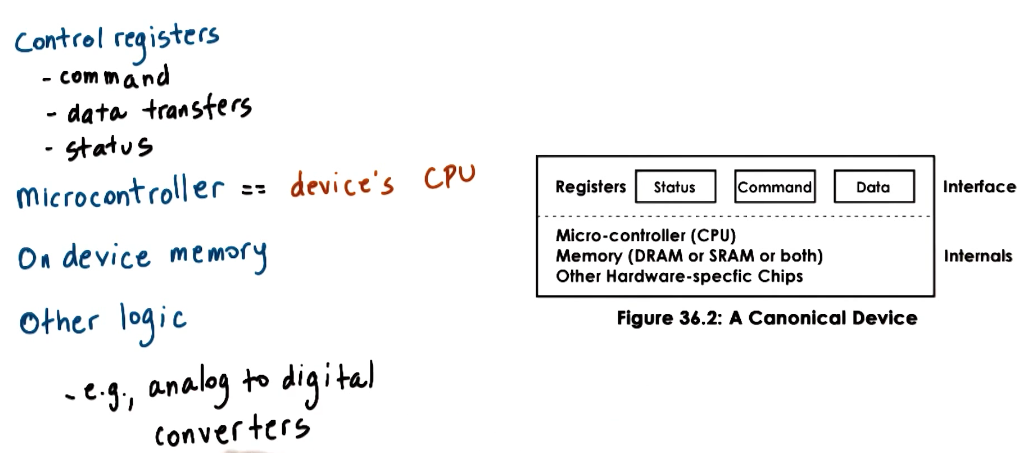 Control registers
- command
- data transfers
- status
microcontroller == device's CPU
On device memory
Other logic
- e.g., analog to digital
converters
Registers Status Command Data Interface
Micro-controller (CPU)
Memory (DRAM or SRAM or both) Internals
Other Hardware-specfic Chips
Figure 36.2: A Canonical Device